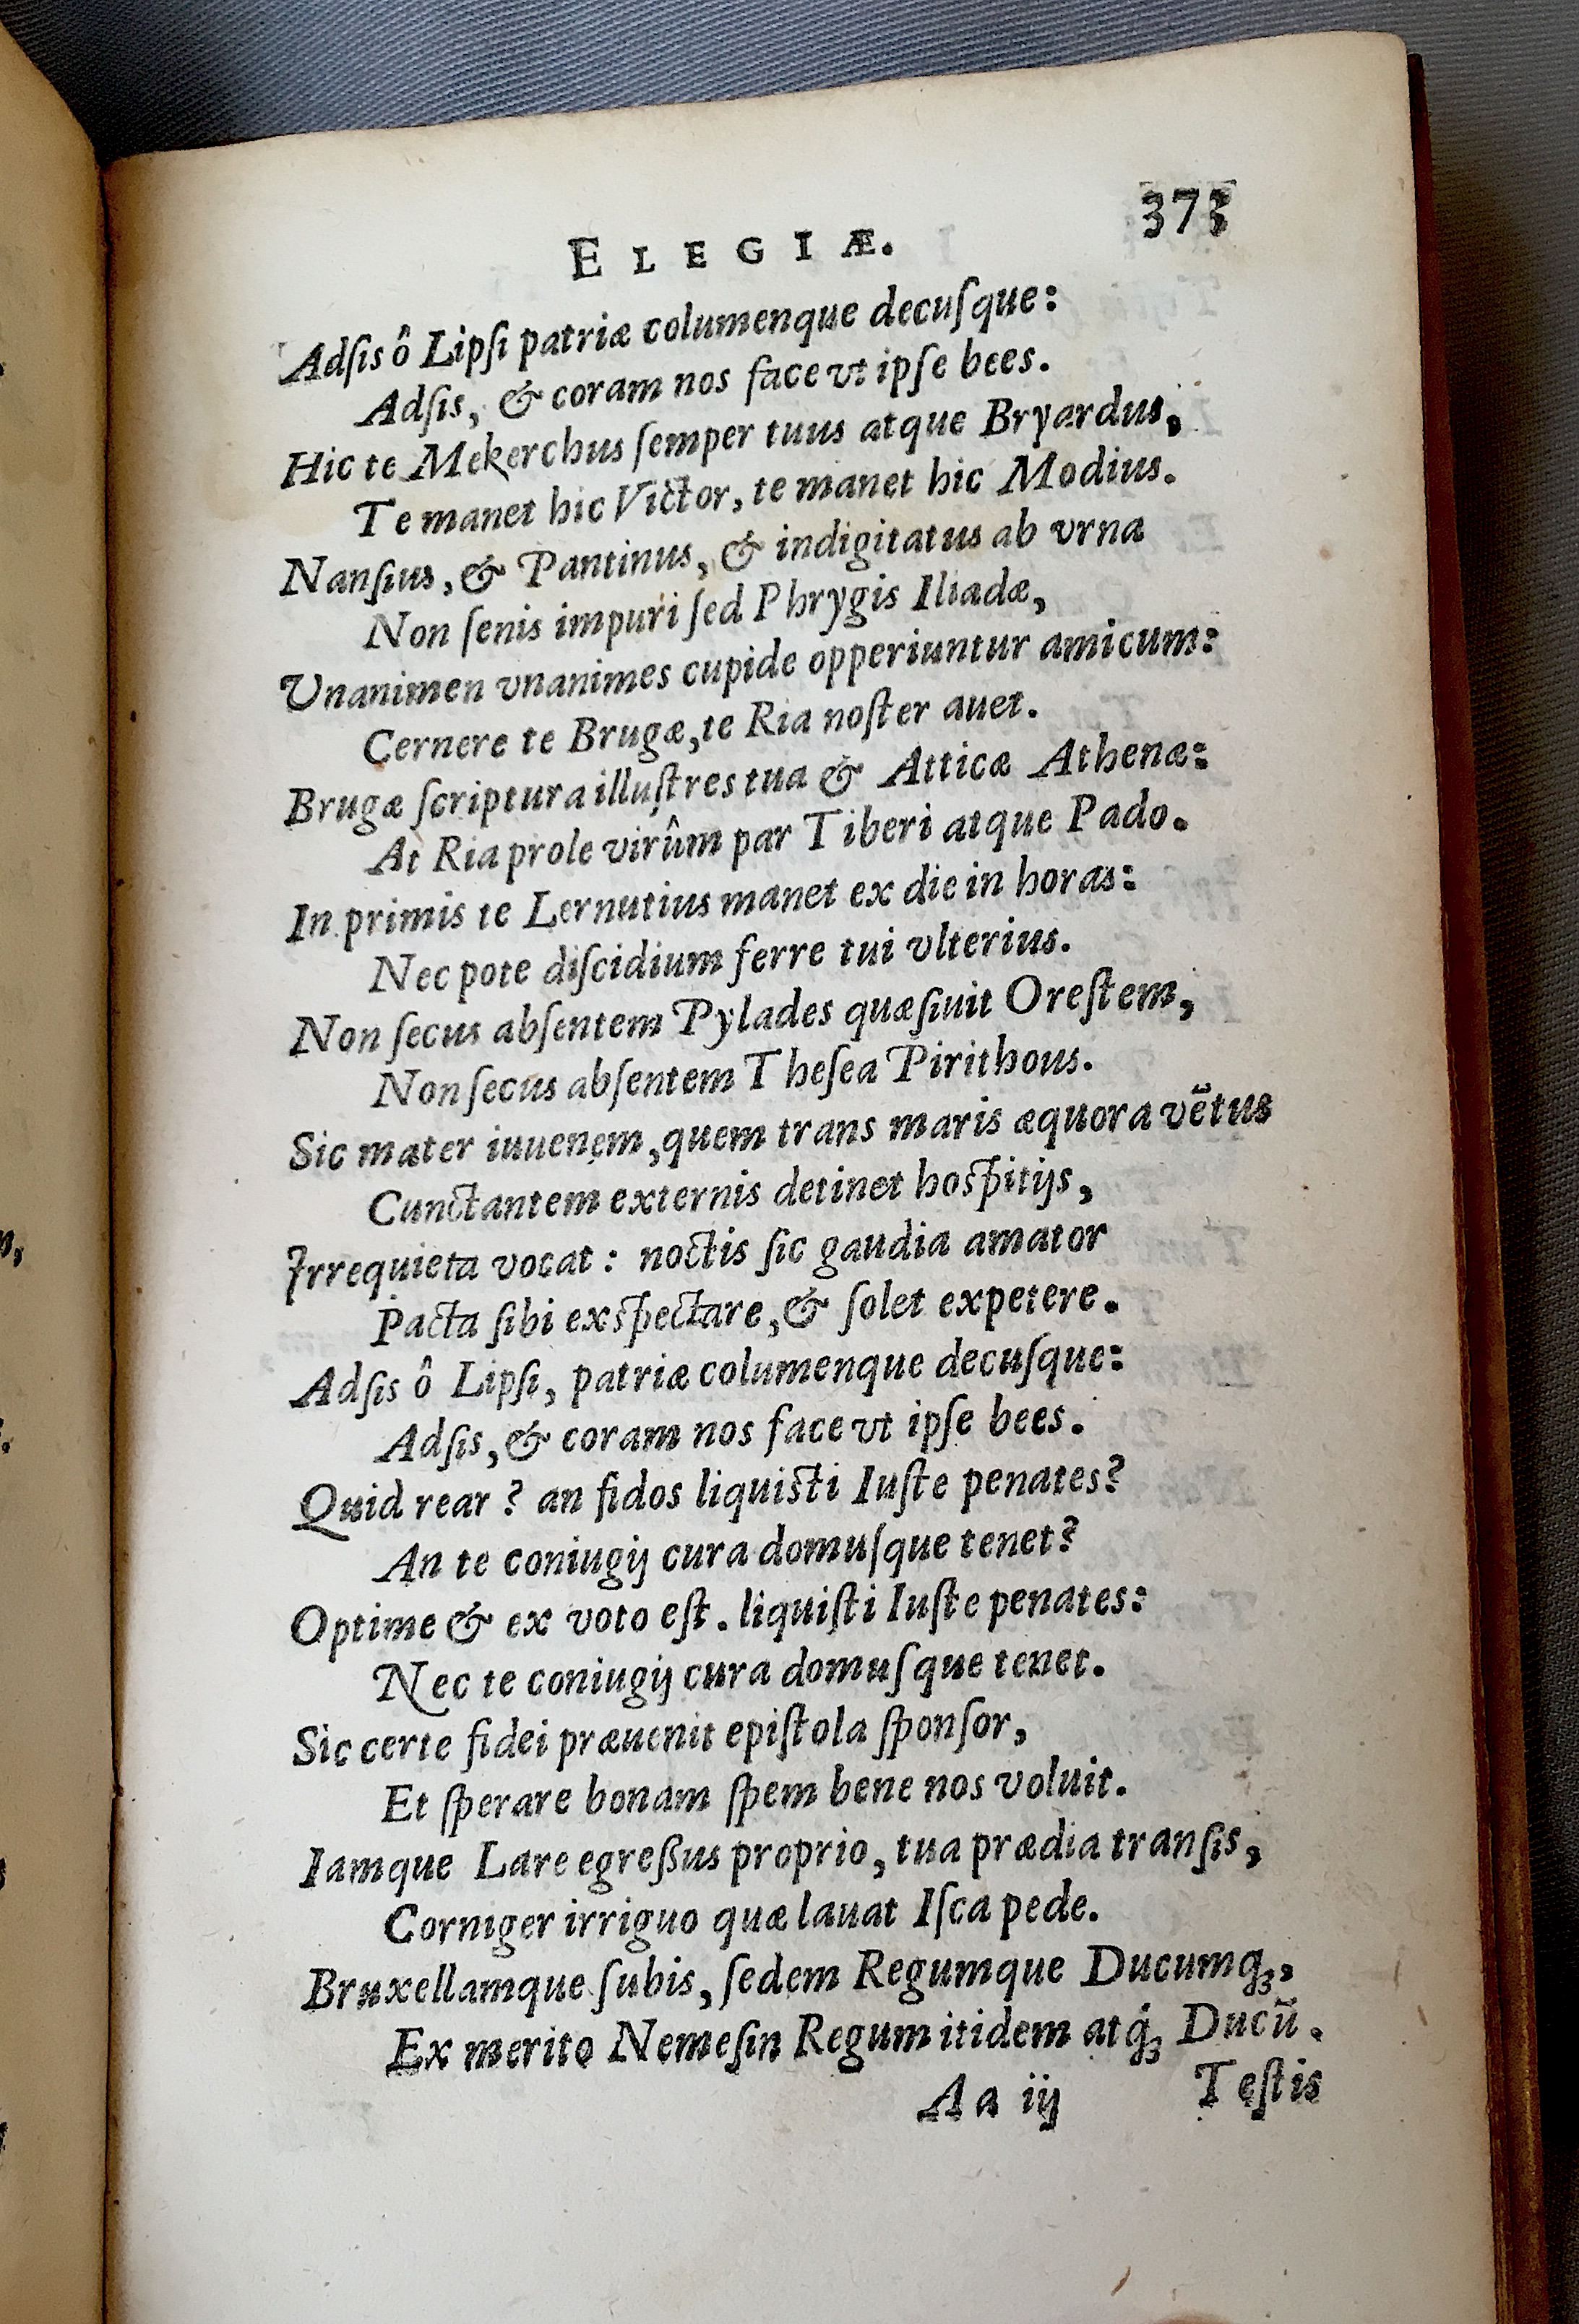 ELEGIÆ. 373
Adſis ô Lipſi patriæ columenque decuſque:
Adſis, & coram nos face vt ipſe bees.
Hic te Mekerchus ſemper tuus atque Bryardus,
Te manet hic Victor, te manet hic Modius.
Nanſius, & Pantinus, & indigitatus ab vrna
Non ſenis impuri ſed Phrygis Iliadæ,
Vnanimen vnanimes cupide opperiuntur amicum:
Cernere te Brugæ, te Ria noſter auet.
Brugæ ſcriptura illuſtres tua & Atticæ Athenæ:
At Ria prole virûm par Tiberi atque Pado.
In primis te Lernutius manet ex die in horas:
Nec pote diſcidium ferre tui vlterius.
Non ſecus abſentem Pylades quæſiuit Oreſtem,
Non ſecus abſentem Theſea Pirithous.
Sic mater iuuenem, quem trans maris æquora vẽtus
Cunctantem externis detinet hoſpitijs,
Irrequieta vocat: noctis ſic gaudia amator
Pacta ſibi exſpectare, & ſolet expetere.
Adſis ô Lipſi, patriæ columenque decuſque:
Adſis, & coram nos face vt ipſe bees.
Quid rear? an fidos liquiſti Iuſte penates?
An te coniugij cura domuſque tenet?
Optime & ex voto eſt. liquiſti Iuſte penates:
Nec te coniugij cura domuſque tenet.
Sic certe fidei præuenit epiſtola ſponſor,
Et ſperare bonam ſpem bene nos voluit.
Iamque Lare egreßus proprio, tua prædia tranſis,
Corniger irriguo quæ lauat Iſca pede.
Bruxellamque ſubis, ſedem Regumque Ducumq́ꝫ,
Ex merito Nemeſin Regum itidem atq́ꝫ Ducũ.
Aa iij Teſtis